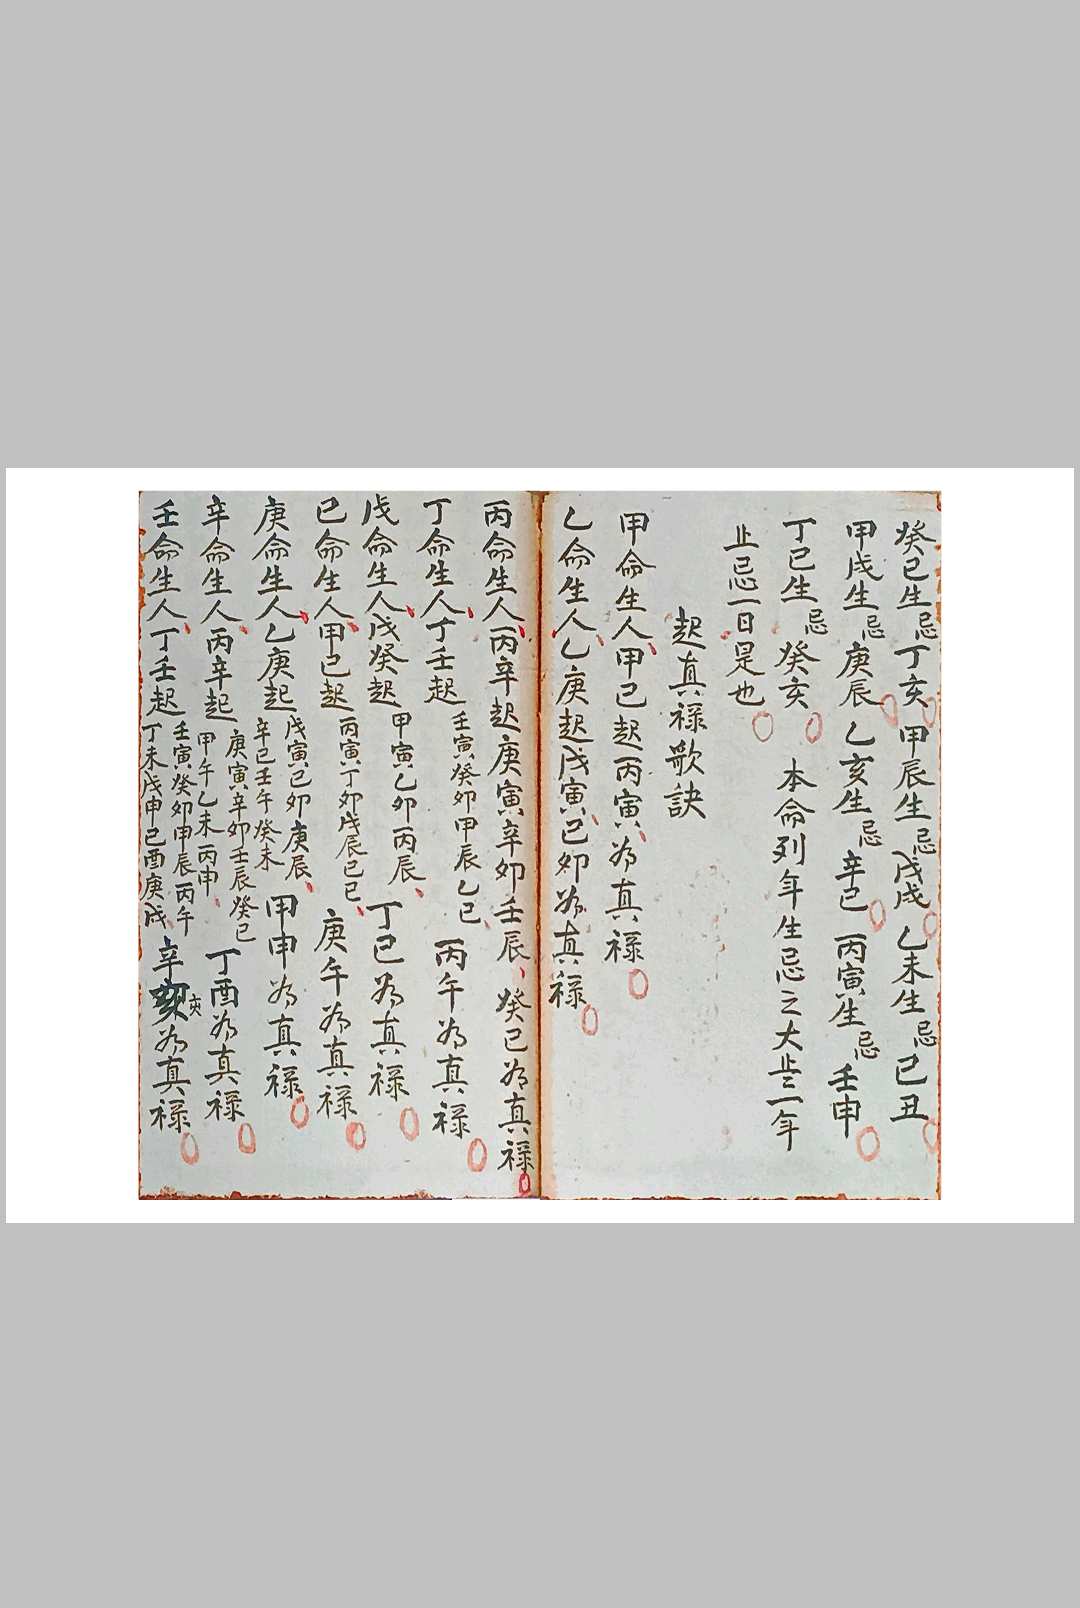 癸巳生忌丁亥甲辰生忌戊戌乙未生忌己丑
甲戌生忌庚辰乙亥生忌辛巳丙寅生忌壬申
丁巳生忌癸亥 本命列年生忌之大㱏三年
止忌一日是也
起真禄歌訣
甲命生人甲己起丙寅為真禄
乙命生人乙庚起戊寅己卯為真禄
丙命生人丙辛起庚寅辛卯壬辰癸巳為真禄
丁命生人丁壬起壬寅癸卯甲辰乙巳丙午為真禄
戊命生人戊癸起甲寅乙卯丙辰丁巳為真禄
己命生人甲己起丙寅丁卯戊辰己巳庚午為真禄
庚命生人乙庚起戊寅己卯庚辰辛巳壬午癸未甲申為真禄
辛命生人丙辛起庚寅辛卯壬辰癸巳甲午乙未丙申丁酉為真禄
壬命生人丁壬起壬寅癸卯甲辰丙午丁未戊申己酉庚戌辛亥為真禄